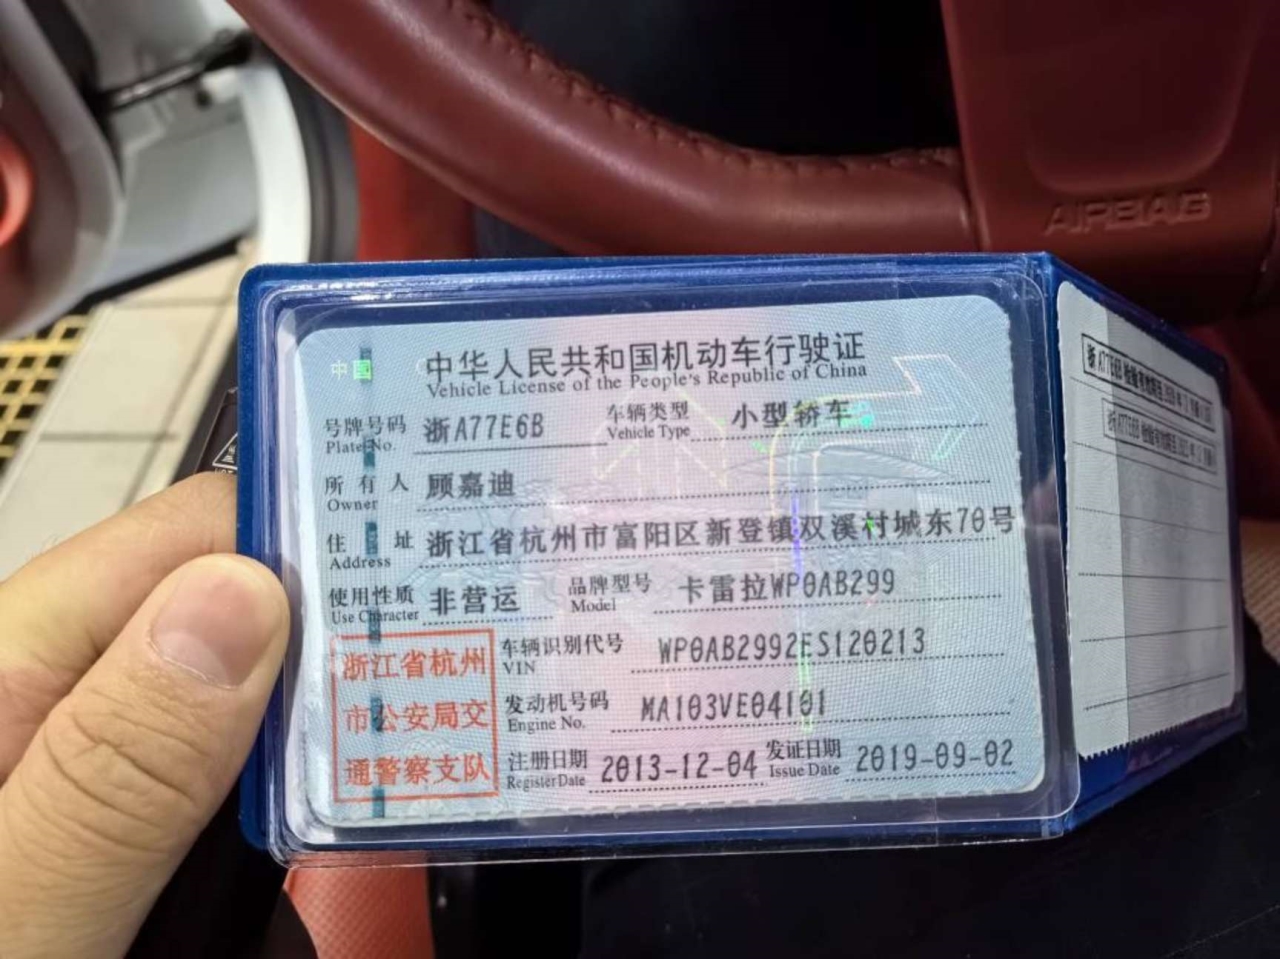 AIRBAG
中国
中华人民共和国机动车行驶证
Vehicle License of the People's Republic of China
号牌号码 浙A77E6B 车辆类型 小型轿车
Plate No. Vehicle Type
所有人 顾嘉迪
Owner
住址 浙江省杭州市富阳区新登镇双溪村城东70号
Address
使用性质 非营运 品牌型号 卡雷拉WP0AB299
Use Character Model
浙江省杭州
市公安局交
通警察支队
车辆识别代号 WP0AB2992ES120213
VIN
发动机号码 MA103VE04101
Engine No.
注册日期 2013-12-04 发证日期 2019-09-02
Register Date Issue Date
浙A77E6B
浙A77E6B